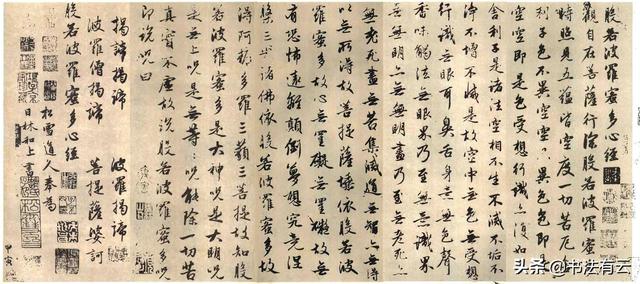 般若波羅蜜多心經
觀自在菩薩行深般若波羅蜜多
時照見五蘊皆空度一切苦厄舍
利子色不異空空不異色色即是
空空即是色受想行識亦復如是
舍利子是諸法空相不生不滅不垢不
净不增不減是故空中無色無受想
行識無眼耳鼻舌身意無色聲
香味觸法無眼界乃至無意識界
無無明亦無無明盡乃至無老死亦
無老死盡無苦集滅道無智亦無得
以無所得故菩提薩埵依般若波
羅蜜多故心無罣礙無罣礙故無
有恐怖遠離顛倒夢想究竟涅
槃三世諸佛依般若波羅蜜多故
得阿耨多羅三藐三菩提故知般
若波羅蜜多是大神咒是大明咒
是無上咒是無等等咒能除一切苦
真實不虛故說般若波羅蜜多咒
即說咒曰
揭諦揭諦 波羅揭諦
波羅僧揭諦 菩提薩婆訶
般若波羅蜜多心經
松雪道人奉為
日林和上書
甲寅
头条 @书法有云